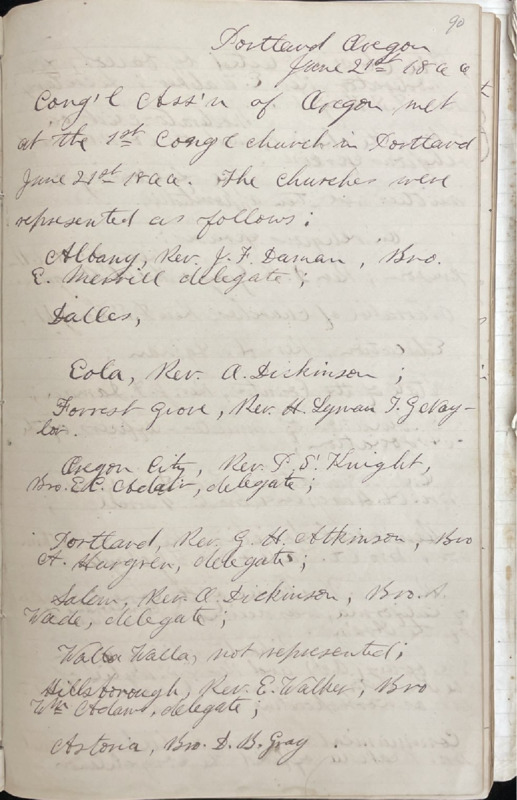 90
Portland Oregon
June 21st 1866
Cong'l Ass'n of Oregon met
at the 1st Cong'l church in Portland
June 21st 1866. The churches were
represented as follows:
Albany, Rev. J. F. Damon, Bro.
E. Merrill delegate;
Dalles,
Eola, Rev. O. Dickinson;
Forrest Grove, Rev. H. Lyman T. G Nay-
lor.
Oregon City, Rev. P. S. Knight,
Bro. E. C. Adair, delegate;
Portland, Rev. G. H. Atkinson, Bro
A. Hargren, delegate;
Salem, Rev. O. Dickinson, Bro. A.
Wade, delegate;
Walla Walla, not represented;
Hillsborough, Rev. E. Walker, Bro
Wm Adams, delegate;
Astoria, Bro. D. B. Gray